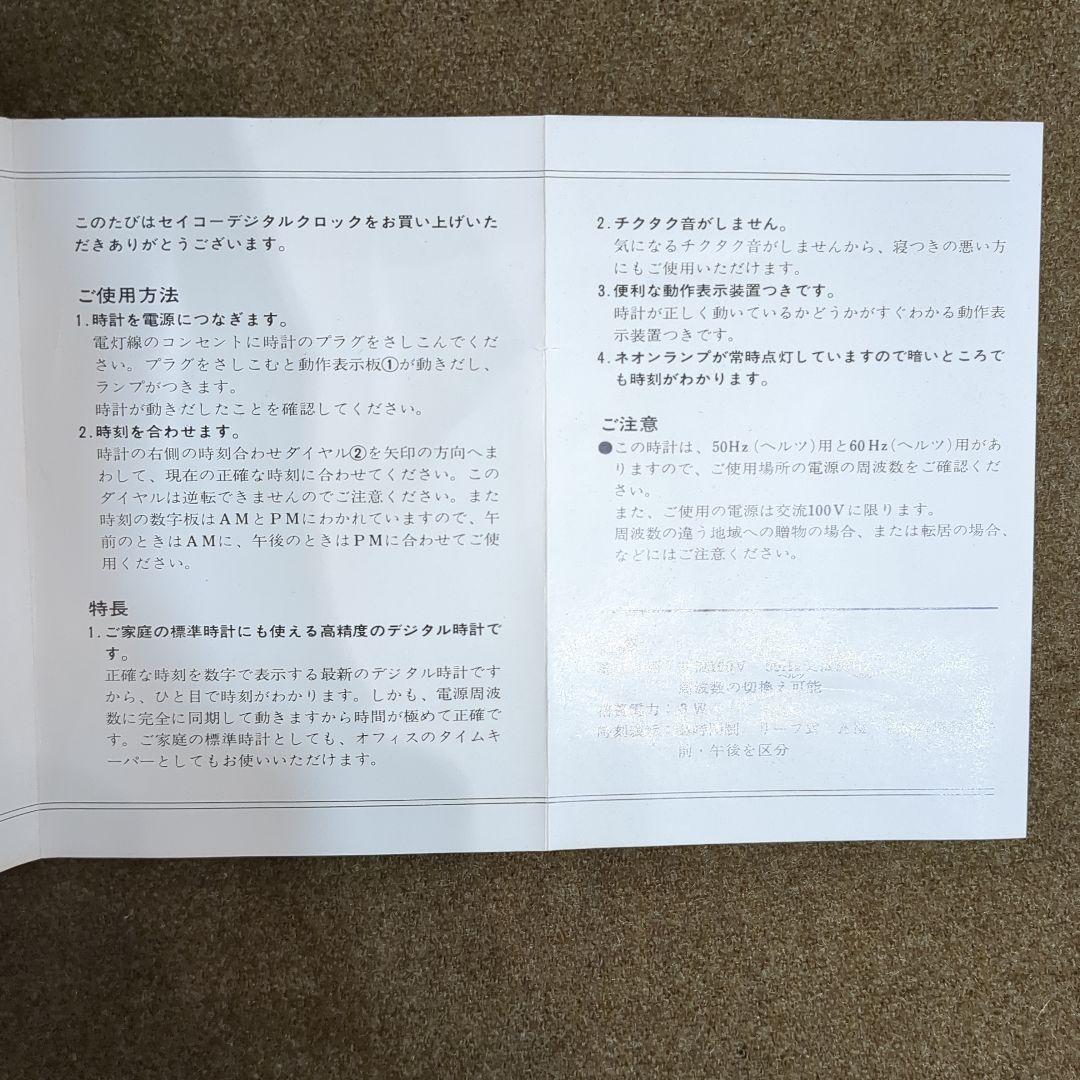 このたびはセイコーデジタルクロックをお買い上げいた
だきありがとうございます。
ご使用方法
1.時計を電源につなぎます。
電灯線のコンセントに時計のプラグをさしこんでくだ
さい。プラグをさしこむと動作表示板①が動きだし、
ランプがつきます。
時計が動きだしたことを確認してください。
2.時刻を合わせます。
時計の右側の時刻合わせダイヤル②を矢印の方向へま
わして、現在の正確な時刻に合わせてください。この
ダイヤルは逆転できませんのでご注意ください。また
時刻の数字板はAMとPMにわかれていますので、午
前のときはAMに、午後のときはPMに合わせてご使
用ください。
特長
1.ご家庭の標準時計にも使える高精度のデジタル時計で
す。
正確な時刻を数字で表示する最新のデジタル時計です
から、ひと目で時刻がわかります。しかも、電源周波
数に完全に同期して動きますから時間が極めて正確で
す。ご家庭の標準時計としても、オフィスのタイムキ
ーパーとしてもお使いいただけます。
2.チクタク音がしません。
気になるチクタク音がしませんから、寝つきの悪い方
にもご使用いただけます。
3.便利な動作表示装置つきです。
時計が正しく動いているかどうかがすぐわかる動作表
示装置つきです。
4.ネオンランプが常時点灯していますので暗いところで
も時刻がわかります。
ご注意
●この時計は、50Hz(ヘルツ)用と60Hz(ヘルツ)用があ
りますので、ご使用場所の電源の周波数をご確認くだ
さい。
また、ご使用の電源は交流100Vに限ります。
周波数の違う地域への贈物の場合、または転居の場合、
などにはご注意ください。
100V
ヘルツ
周波数の切換え可能
電力：3W
前・午後を区分